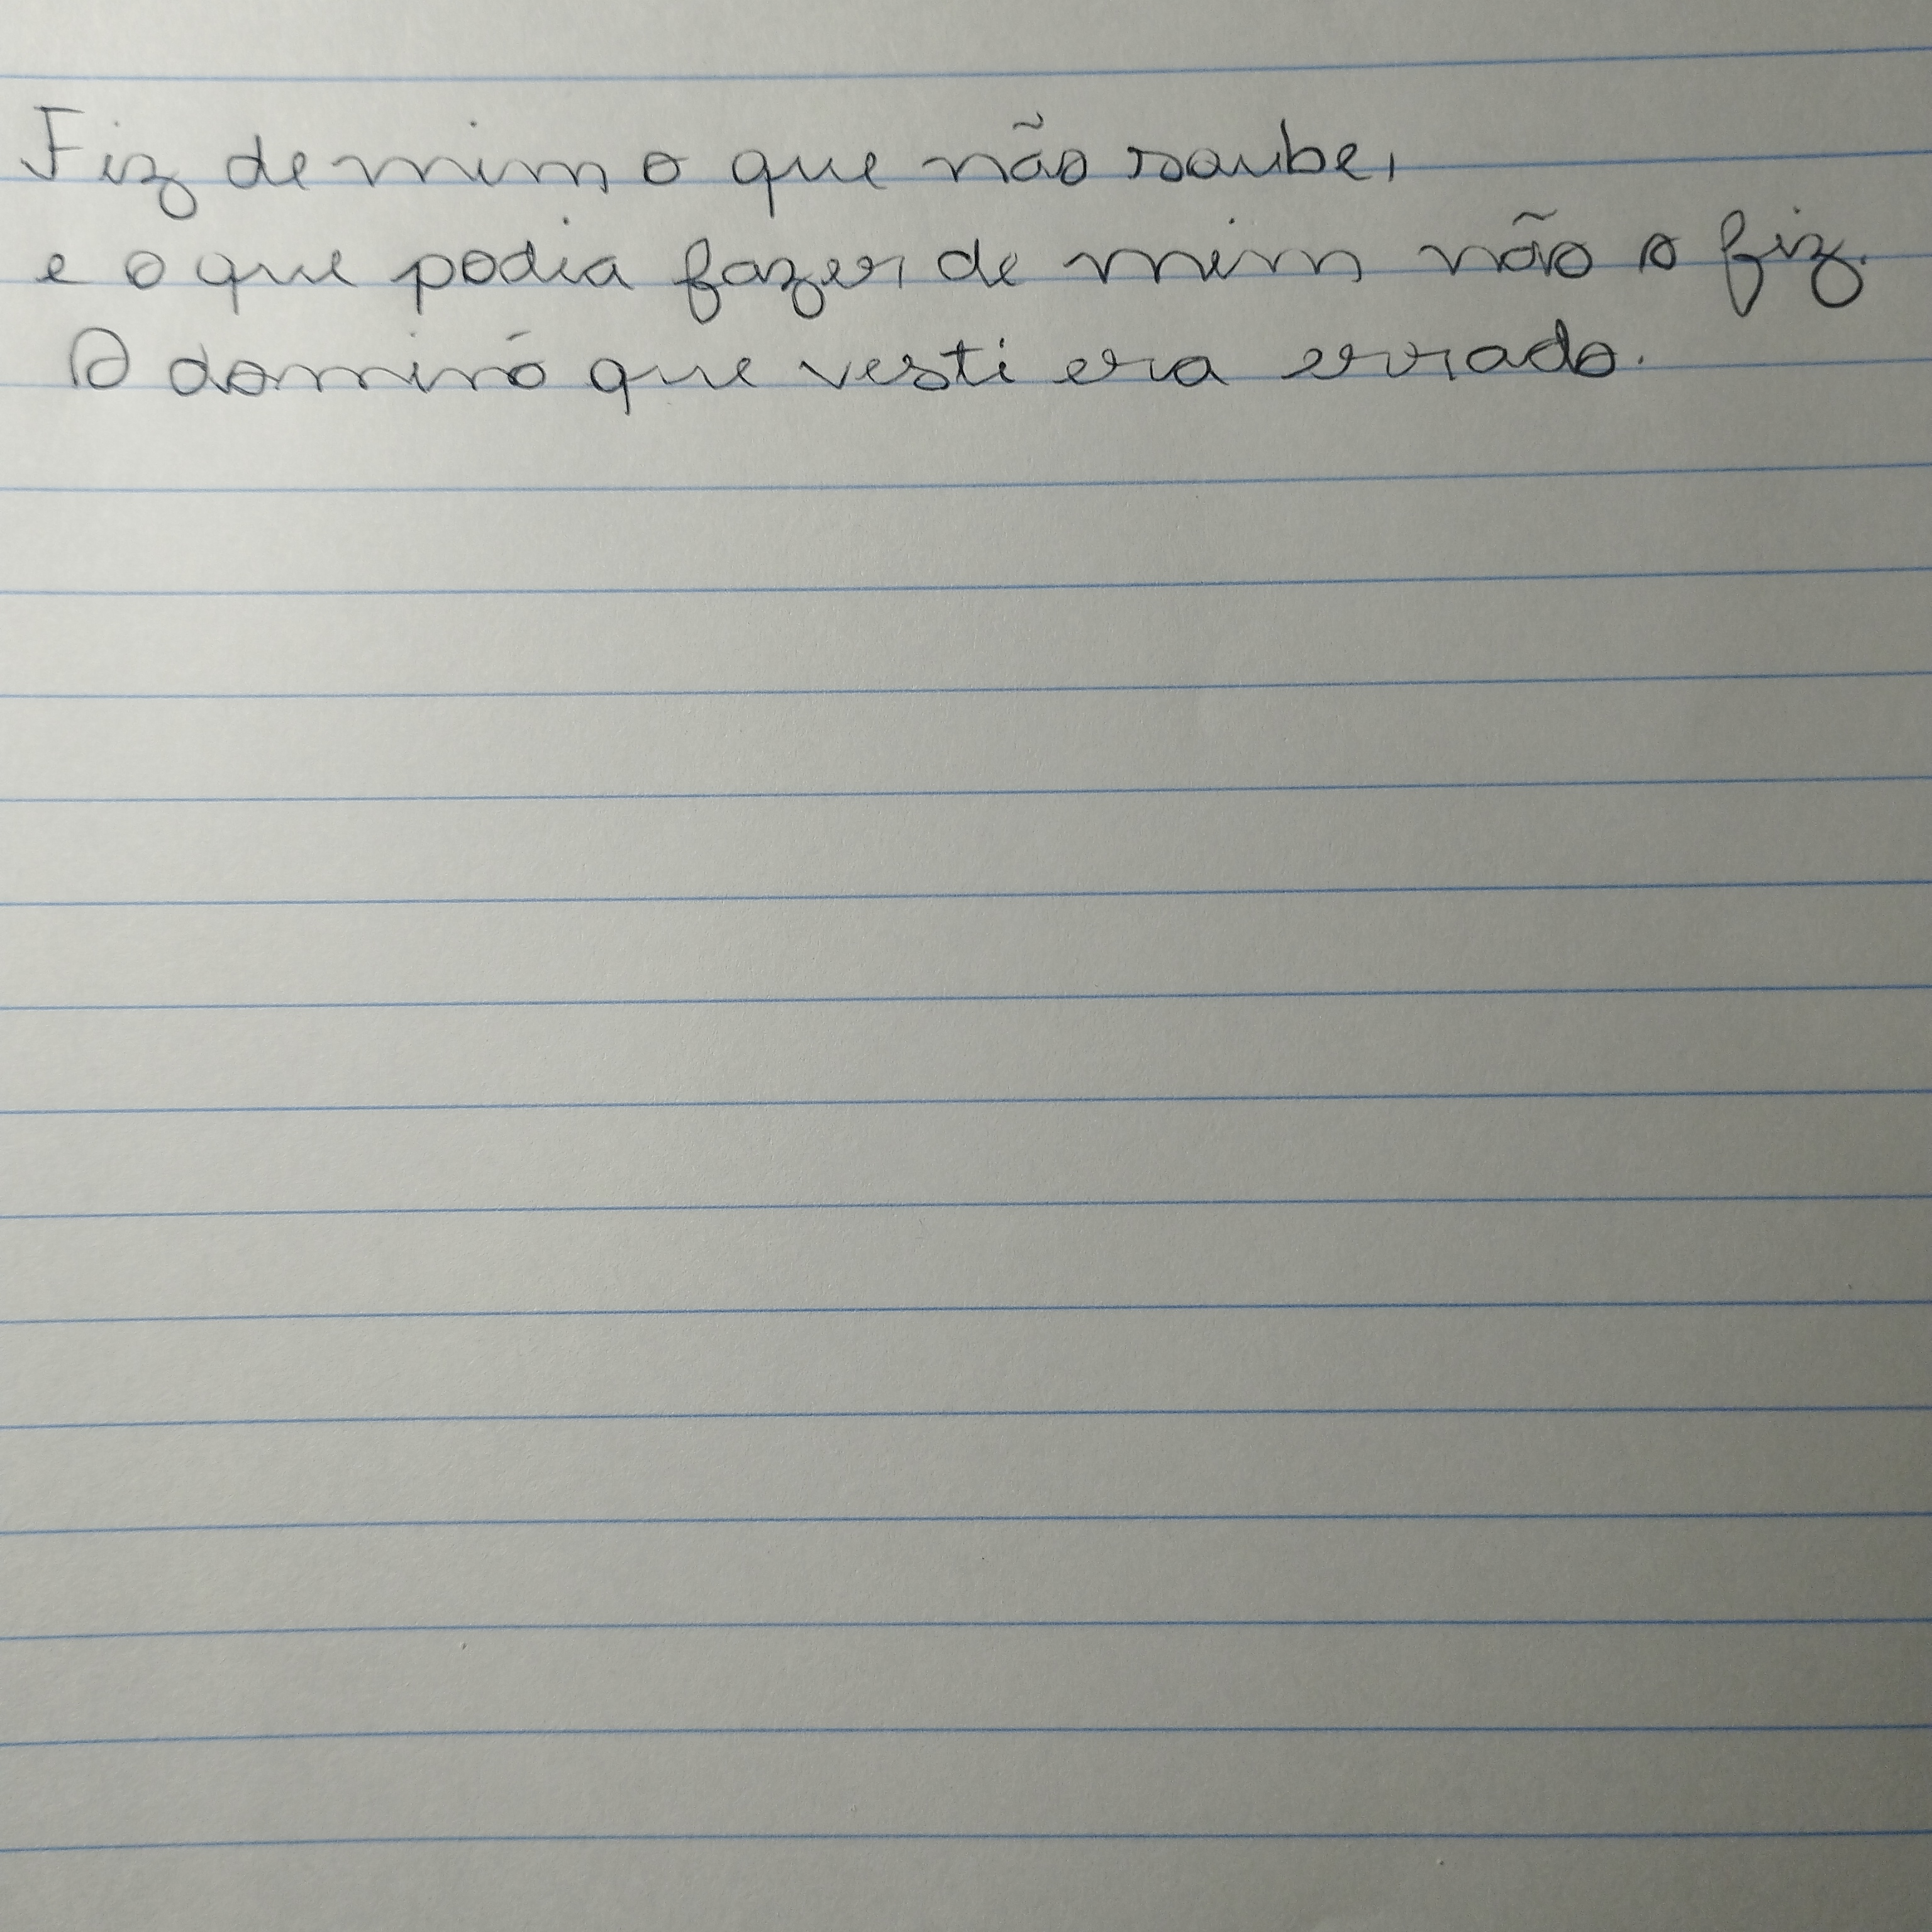 Fiz de mim o que não soube,
e o que podia fazer de mim não o fiz.
O dominó que vesti era errado.